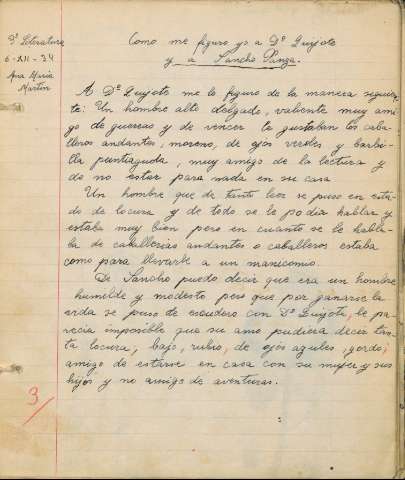 3º Literatura
6-XII-34
Ana María
Martín
Como me figuro yo a Dº Quijote
y a Sancho Panza.
A Dº Quijote me lo figuro de la manera siguien-
te: Un hombre alto delgado, valiente muy ami-
go de guerras y de vencer le gustaban los caba-
lleros andantes, moreno, de ojos verdes y barbi-
lla puntiaguda, muy amigo de la lectura y
de no estar para nada en su casa
Un hombre que de tanto leer se puso en esta-
do de locura y de todo se le podia hablar y
estaba muy bien pero en cuanto se le habla-
ba de caballerias andantes o caballeros estaba
como para llevarle a un manicomio.
De Sancho puedo decir que era un hombre
humilde y modesto pero que por ganarse la
vida se puso de escudero con Dº Quijote, le pa-
recia imposible que su amo pudiera decir tan-
ta locura; bajo, rubio, de ojos azules, gordo;
amigo de estarse en casa con su mujer y sus
hijos y no amigo de aventuras.
3/